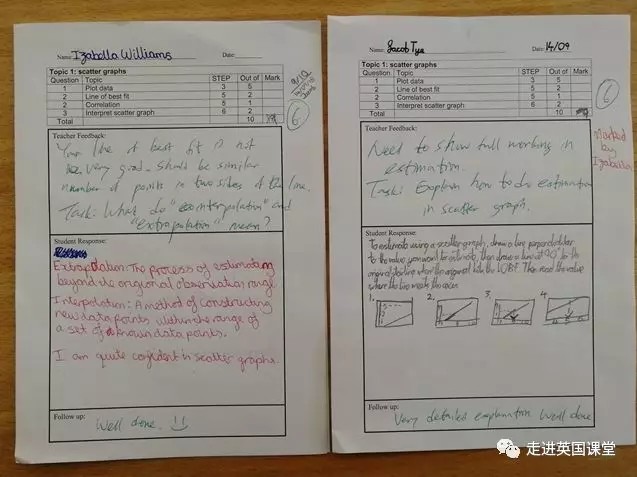 Name: Izabella Williams
Date:
Topic 1: scatter graphs
Question Topic STEP Out of Mark
1 Plot data 3 5
2 Line of best fit 5 2
2 Correlation 5 1
3 Interpret scatter graph 6 2
Total 10
6
Teacher Feedback:
Your line of best fit is not
very good. Should be similar
number of points in two sides of the line.
Task: What do "interpolation" and
"extrapolation" mean?
Student Response:
Extrapolation: The process of estimating
beyond the original observation range
Interpolation: A method of constructing
new data points within the range of
a set of known data points.
I am quite confident in scatter graphs.
Follow up:
Well done.
Name: Jacob Tye
Date: 14/09
Topic 1: scatter graphs
Question Topic STEP Out of Mark
1 Plot data 3 5
2 Line of best fit 5 2
2 Correlation 5 1
3 Interpret scatter graph 6 2
Total 10
6
Marked
by
Izabella
Teacher Feedback:
Need to show full working in
estimation.
Task: Explain how to do estimation
in scatter graph.
Student Response:
To estimate using a scatter graph, draw a line perpendicular
to the value you want to estimate, then draw a line at 90° to the
original starting where the original hits the LOBF. Then read the value
where the line meets the axis.
1. 2. 3. 4.
Follow up:
Very detailed explanation Well done
走进英国课堂